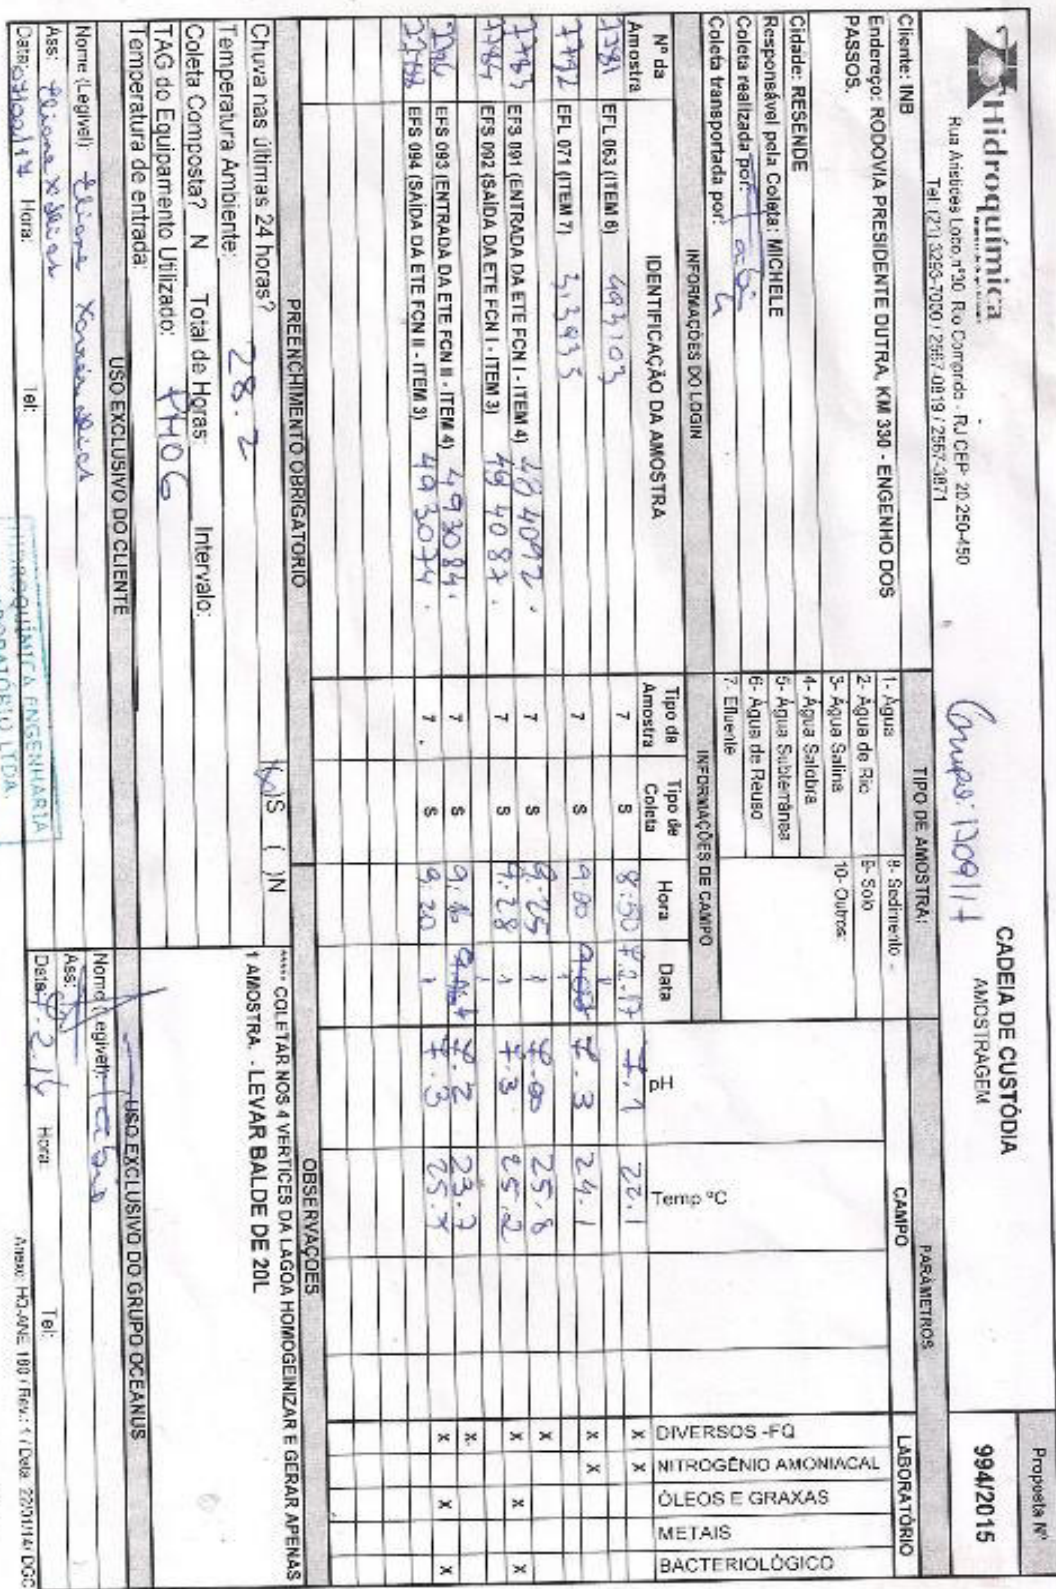 Hidroquímica
Rua Aristides Lobo, nº30, Rio Comprido - RJ CEP: 20.250-450
Tel: (21) 3293-7000 / 2567-0819 / 2567-3871
CADEIA DE CUSTÓDIA
AMOSTRAGEM
Proposta Nº
994/2015
Cliente: INB
Endereço: RODOVIA PRESIDENTE DUTRA, KM 330 - ENGENHO DOS
PASSOS.
Cidade: RESENDE
Responsável pela Coleta: MICHELE
Coleta realizada por:
Coleta transportada por:
TIPO DE AMOSTRA:
1- Água
2- Água de Rio
3- Água Salina
4- Água Salobra
5- Água Subterrânea
6- Água de Reuso
7- Efluente
8- Sedimento
9- Solo
10- Outros:
PARÂMETROS
CAMPO
LABORATÓRIO
INFORMAÇÕES DO LOGIN
INFORMAÇÕES DE CAMPO
Nº da Amostra
IDENTIFICAÇÃO DA AMOSTRA
Tipo da Amostra
Tipo de Coleta
Hora
Data
pH
Temp ºC
DIVERSOS -FQ
NITROGÊNIO AMONIACAL
ÓLEOS E GRAXAS
METAIS
BACTERIOLÓGICO
EFL 063 (ITEM 6) 493103 7 S 8:50 7.2.17 7.1 22.1 X X
EFL 071 (ITEM 7) 7 S 9:00 7.3 24.1 X X
EFS 091 (ENTRADA DA ETE FCN I - ITEM 4) 7 S 9:25 25,8 X
EFS 092 (SAÍDA DA ETE FCN I - ITEM 3) 494087. 7 S 9:28 7.3 25,2 X X X
EFS 093 (ENTRADA DA ETE FCN II - ITEM 4) 493084. 7 S 7.2 23.7 X
EFS 094 (SAÍDA DA ETE FCN II - ITEM 3) 493074. 7 S 9:20 7.3 X X X
PREENCHIMENTO OBRIGATÓRIO
Chuva nas últimas 24 horas? S ( )N
Temperatura Ambiente: 28.2
Coleta Composta? N Total de Horas: Intervalo:
TAG do Equipamento Utilizado: PH06
Temperatura de entrada:
OBSERVAÇÕES
***** COLETAR NOS 4 VERTICES DA LAGOA HOMOGEINIZAR E GERAR APENAS
1 AMOSTRA. - LEVAR BALDE DE 20L
USO EXCLUSIVO DO CLIENTE
Nome (Legível): Eliane
Ass: Eliane
Data: Hora: Tel:
HIDROQUÍMICA ENGENHARIA
LABORATÓRIO LTDA.
USO EXCLUSIVO DO GRUPO OCEANUS
Nome (Legível): Fabio
Ass:
Data: Hora: Tel:
Anexo: HQ-ANE 180 / Rev.: 1 / Data: 22/01/14 / DGC